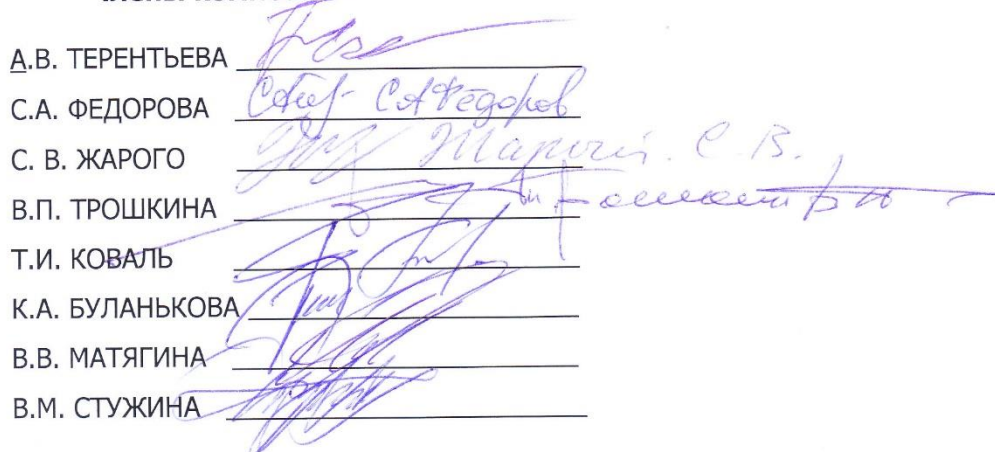 А.В. ТЕРЕНТЬЕВА
С.А. ФЕДОРОВА САФёдоров
С. В. ЖАРОГО Жарый С.В.
В.П. ТРОШКИНА
Т.И. КОВАЛЬ
К.А. БУЛАНЬКОВА
В.В. МАТЯГИНА
В.М. СТУЖИНА